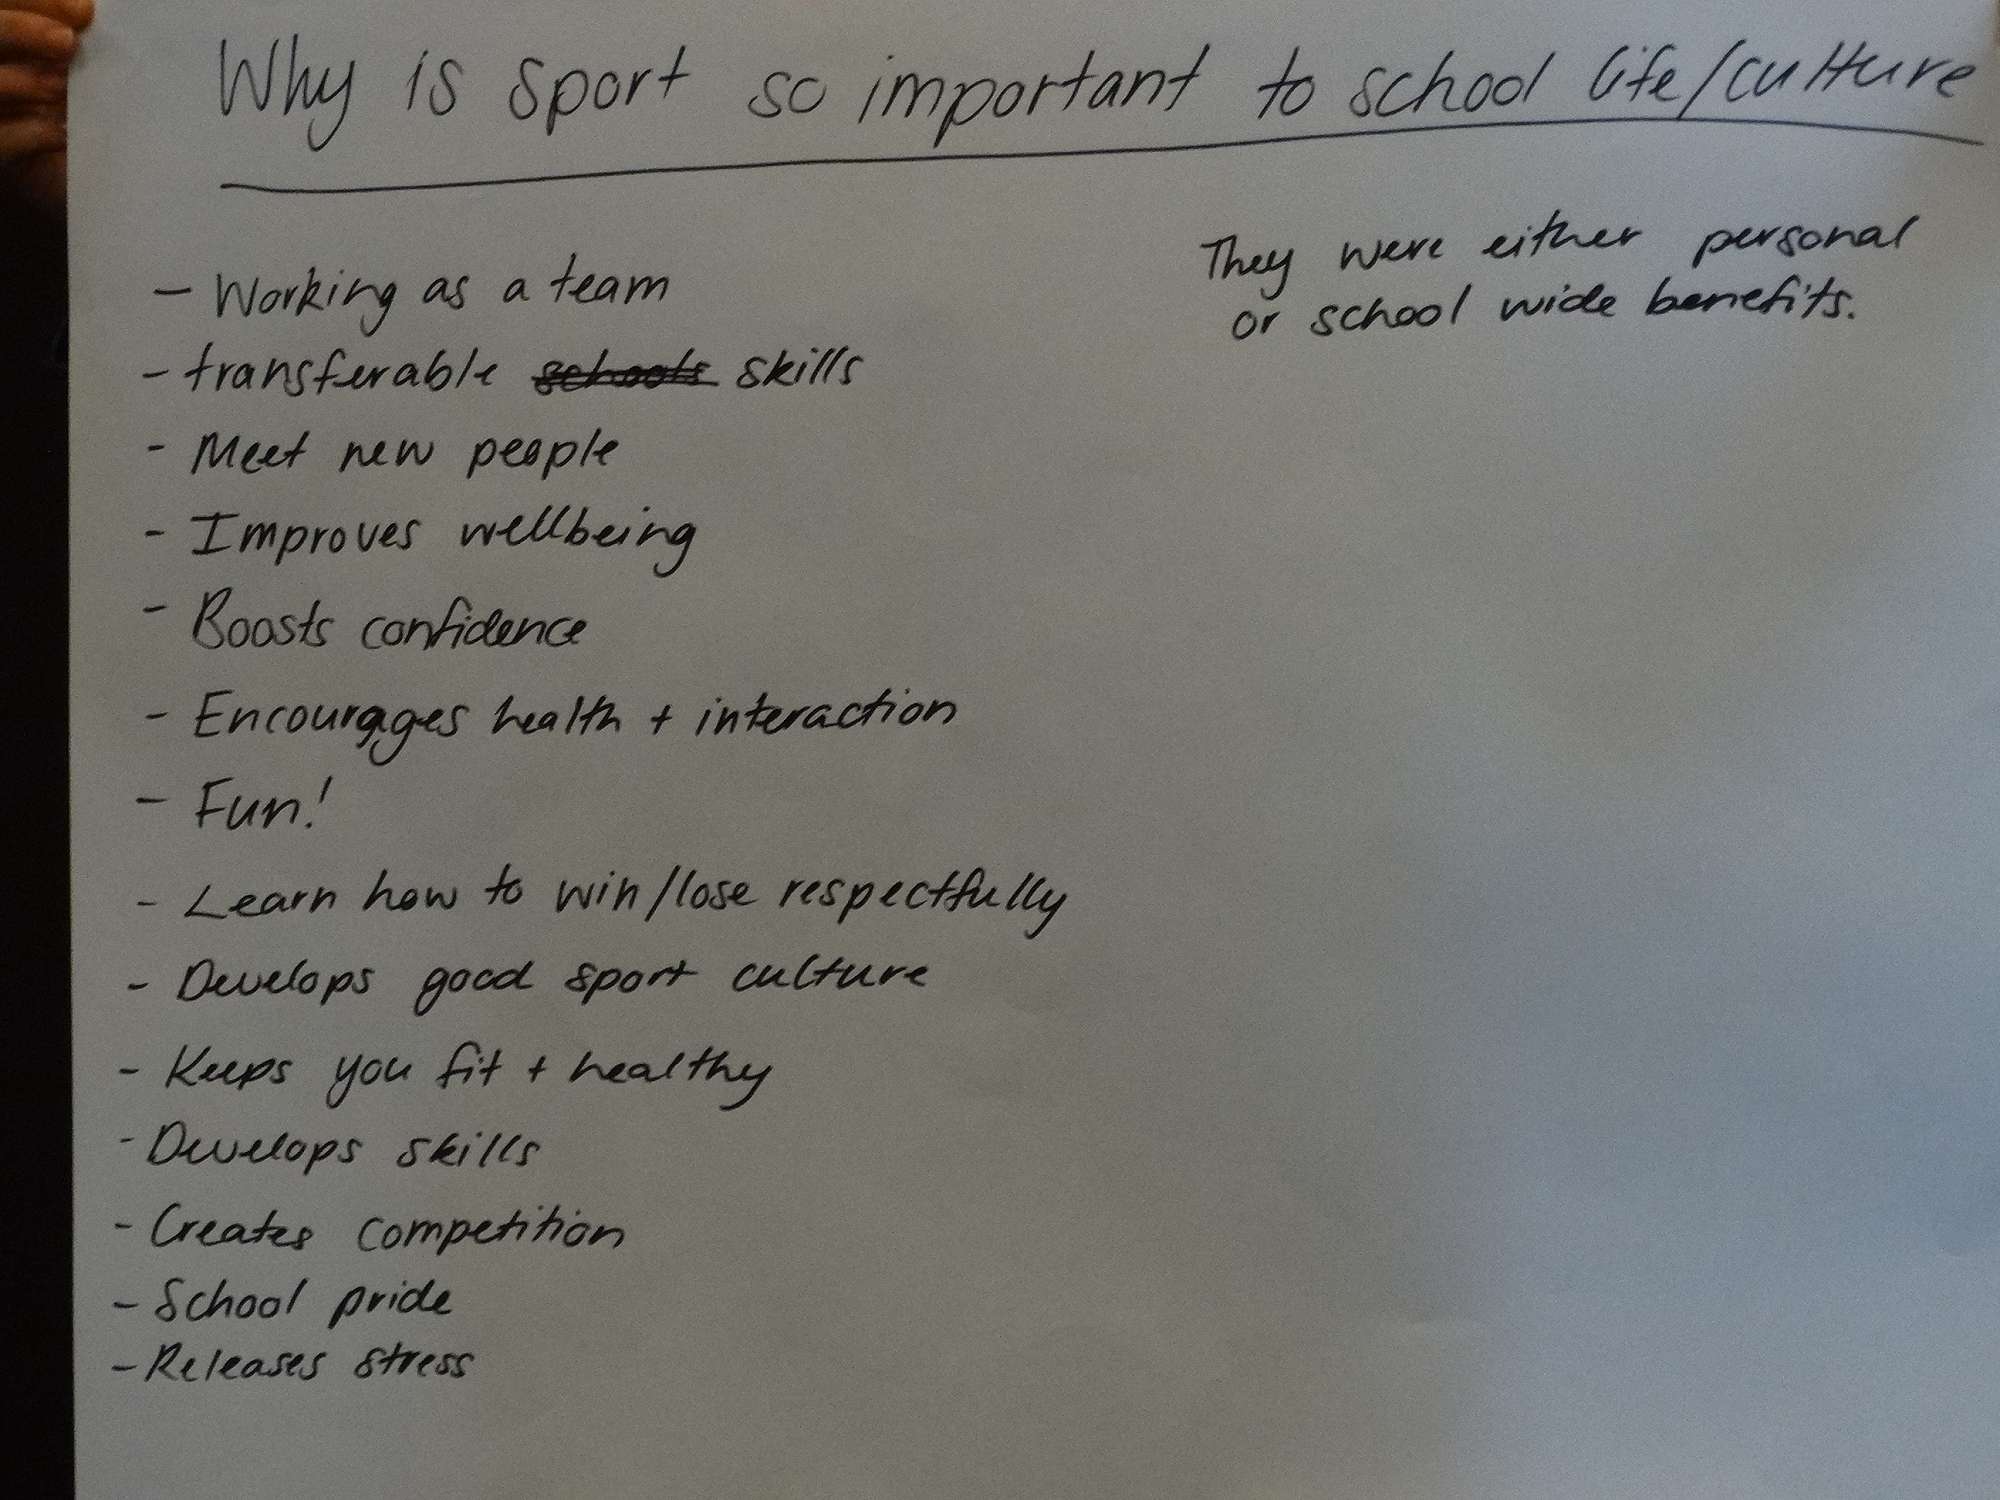 Why is sport so important to school life/culture
They were either personal
or school wide benefits.
- Working as a team
- transferable schools skills
- Meet new people
- Improves wellbeing
- Boosts confidence
- Encourages health + interaction
- Fun!
- Learn how to win/lose respectfully
- Develops good sport culture
- Keeps you fit + healthy
- Develops skills
- Creates competition
- School pride
- Releases stress